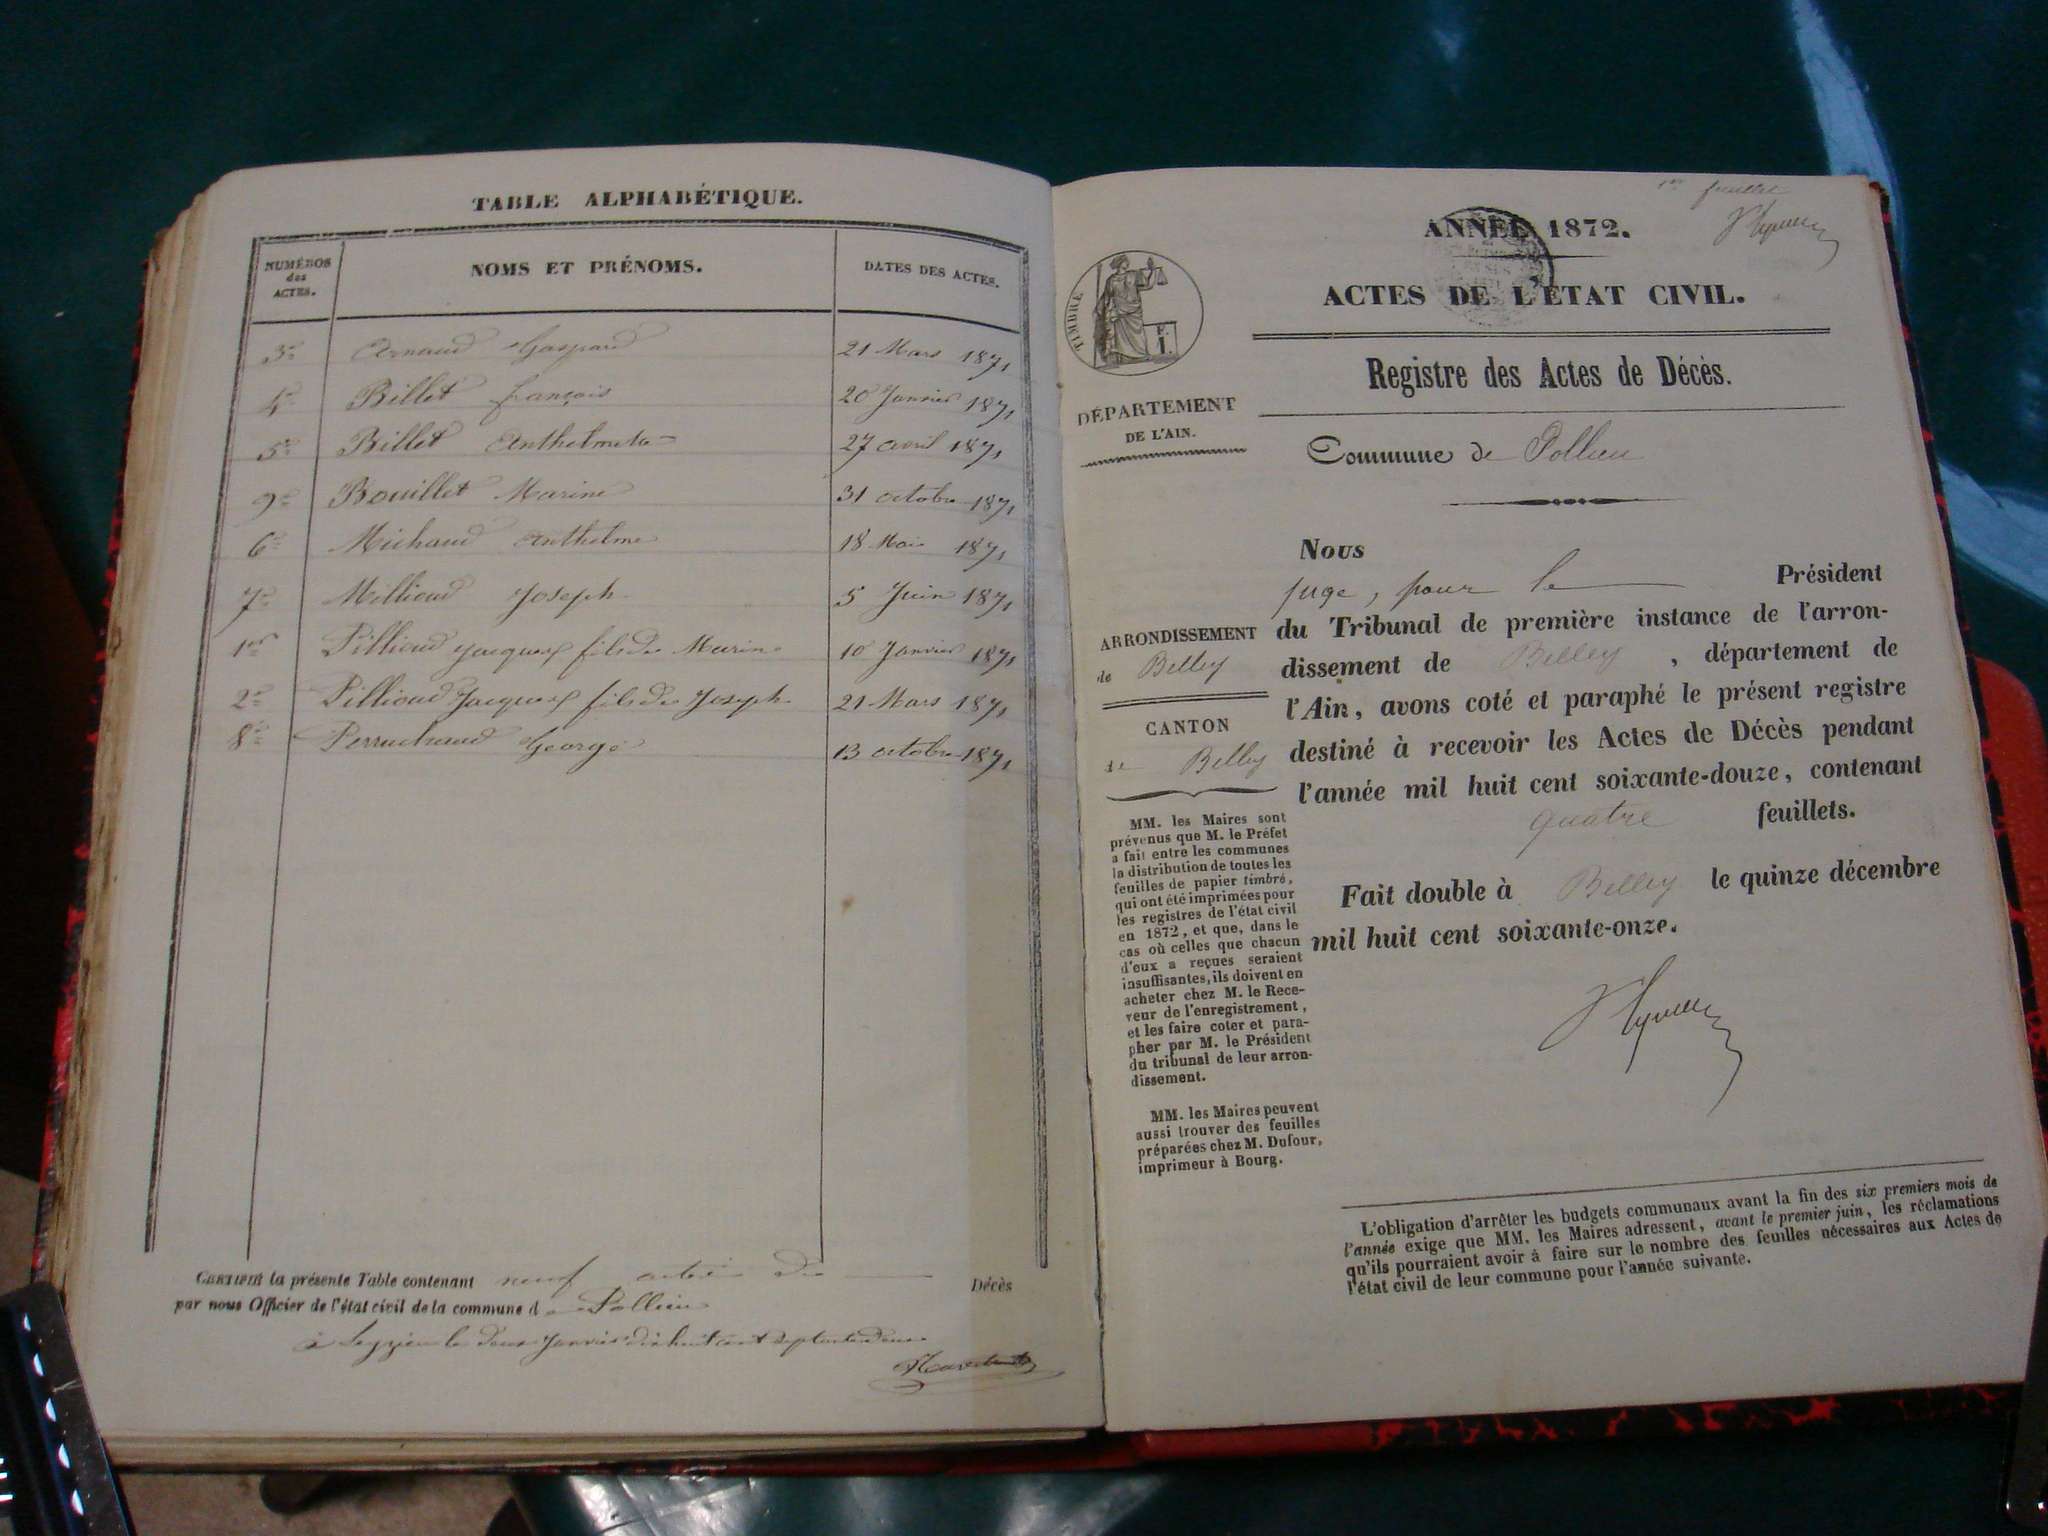 TABLE ALPHABÉTIQUE.
NUMÉROS des ACTES. NOMS ET PRÉNOMS. DATES DES ACTES.
3e Arnaud Gaspard 21 Mars 1871
4e Billet françois 20 Janvier 1871
5e Billet Anthelmete 27 avril 1871
9e Bouillet Marine 31 octobre 1871
6e Michaud Anthelme 18 Mai 1871
7e Millioud Joseph 5 Juin 1871
1er Pillioud Jacques fils de Marin 10 Janvier 1871
2e Pillioud Jacques fils de Joseph 21 Mars 1871
8e Perruchaud George 13 octobre 1871
CERTIFIÉ la présente Table contenant neuf actes de Décès
par nous Officier de l'état civil de la commune de Pollieu
à le deux Janvier dix huit cent septante deux
1er feuillet
ANNÉE 1872.
ACTES DE L'ÉTAT CIVIL.
TIMBRE
Registre des Actes de Décès.
DÉPARTEMENT
DE L'AIN.
Commune de Pollieu
Nous
juge, pour le Président
du Tribunal de première instance de l'arron-
dissement de Belley, département de
l'Ain, avons coté et paraphé le présent registre
destiné à recevoir les Actes de Décès pendant
l'année mil huit cent soixante-douze, contenant
quatre feuillets.
Fait double à Belley le quinze décembre
mil huit cent soixante-onze.
ARRONDISSEMENT
de Belley
CANTON
de Belley
MM. les Maires sont
prévenus que M. le Préfet
a fait entre les communes
la distribution de toutes les
feuilles de papier timbré,
qui ont été imprimées pour
les registres de l'état civil
en 1872, et que, dans le
cas où celles que chacun
d'eux a reçues seraient
insuffisantes, ils doivent en
acheter chez M. le Rece-
veur de l'enregistrement,
et les faire coter et para-
pher par M. le Président
du tribunal de leur arron-
dissement.
MM. les Maires peuvent
aussi trouver des feuilles
préparées chez M. Dufour,
imprimeur à Bourg.
L'obligation d'arrêter les budgets communaux avant la fin des six premiers mois de
l'année exige que MM. les Maires adressent, avant le premier juin, les réclamations
qu'ils pourraient avoir à faire sur le nombre des feuilles nécessaires aux Actes de
l'état civil de leur commune pour l'année suivante.